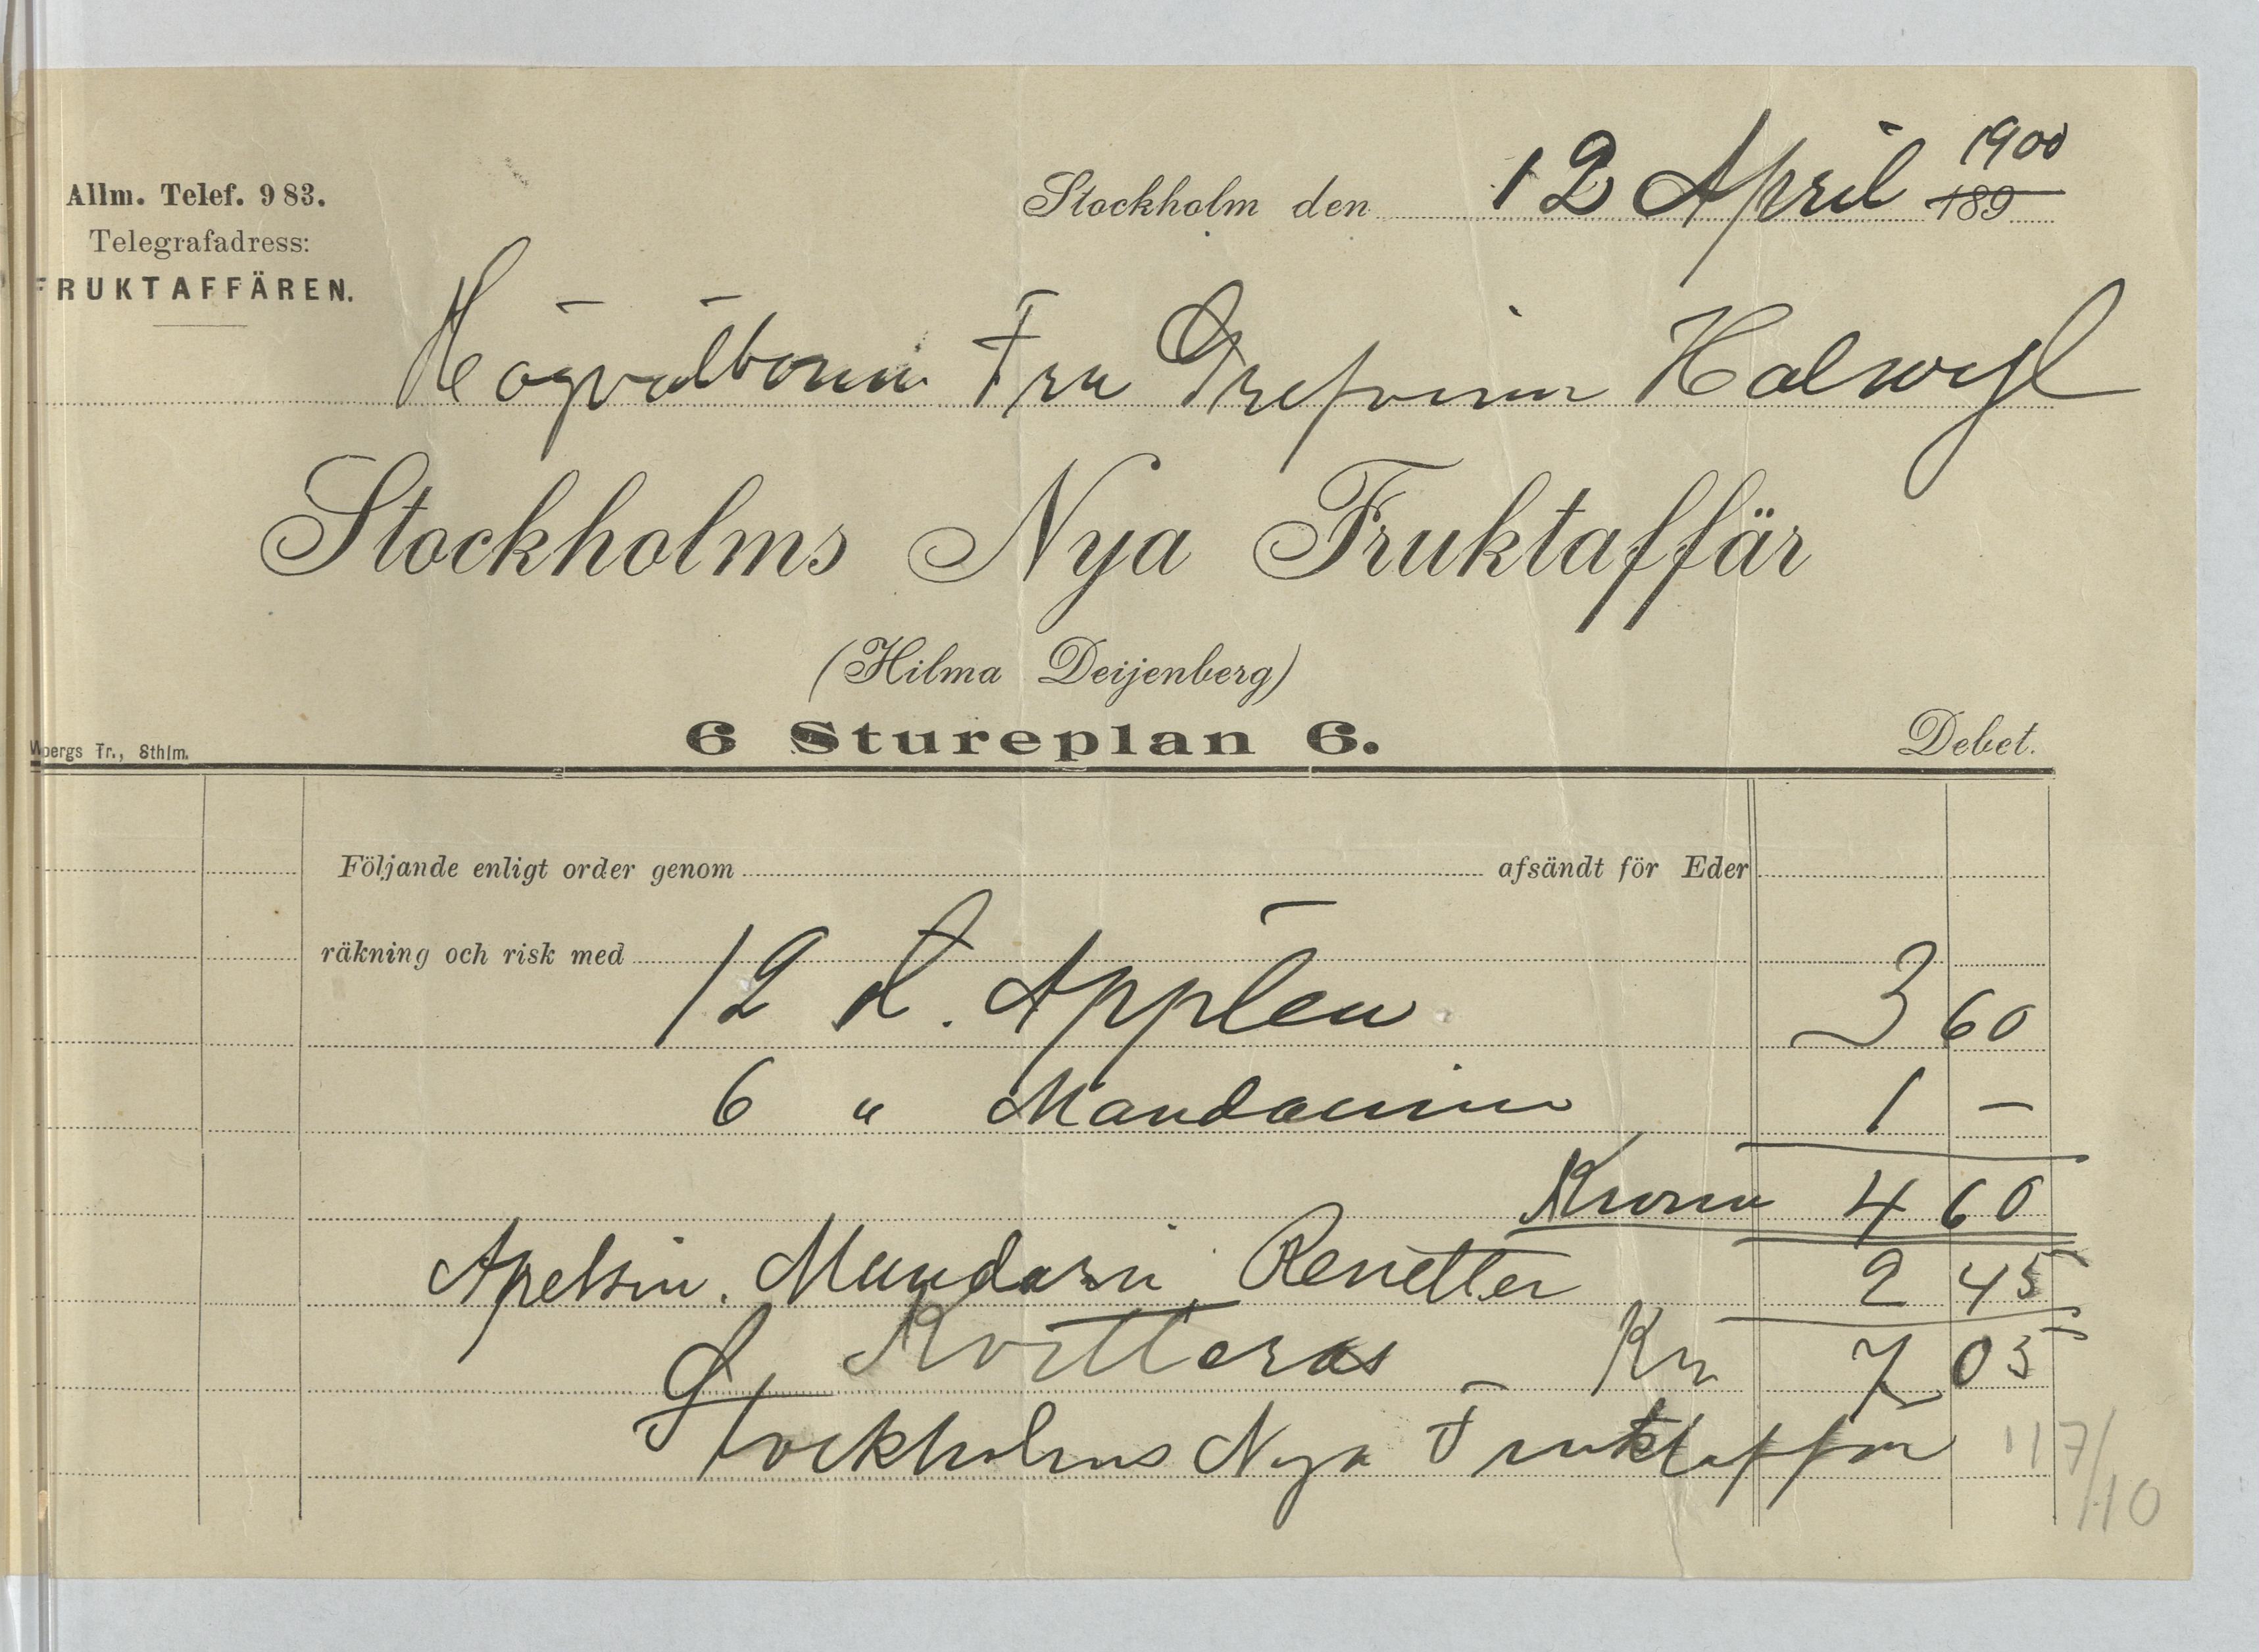 Allm. Telef. 983.
Telegrafadress:
FRUKTAFFÄREN.
Stockholm den 12 April 1900
189
Högvälborna Fru Grefvinn Halwyl
Stockholms Nya Fruktaffär
(Hilma Deijenberg)
6 Stureplan 6.
bergs Tr., Sthlm.
Debet.
Följande enligt order genom afsändt för Eder
räkning och risk med 12 st. Äpplen 3 60
6 " Mandariner 1 —
Kronor 4 60
Apelsin. Mandarin Renetter 2 45
Kvitteras Kr 7 05
Stockholms Nya Fruktaffär
117/10